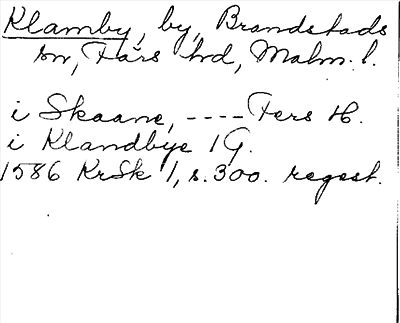 Klamby, by, Brandstads
sn, Färs hd, Malm. l.
i Skaane, ---- Fers H.
i Klandbye 1 G.
1586 KrSk 1, s. 300. regest.